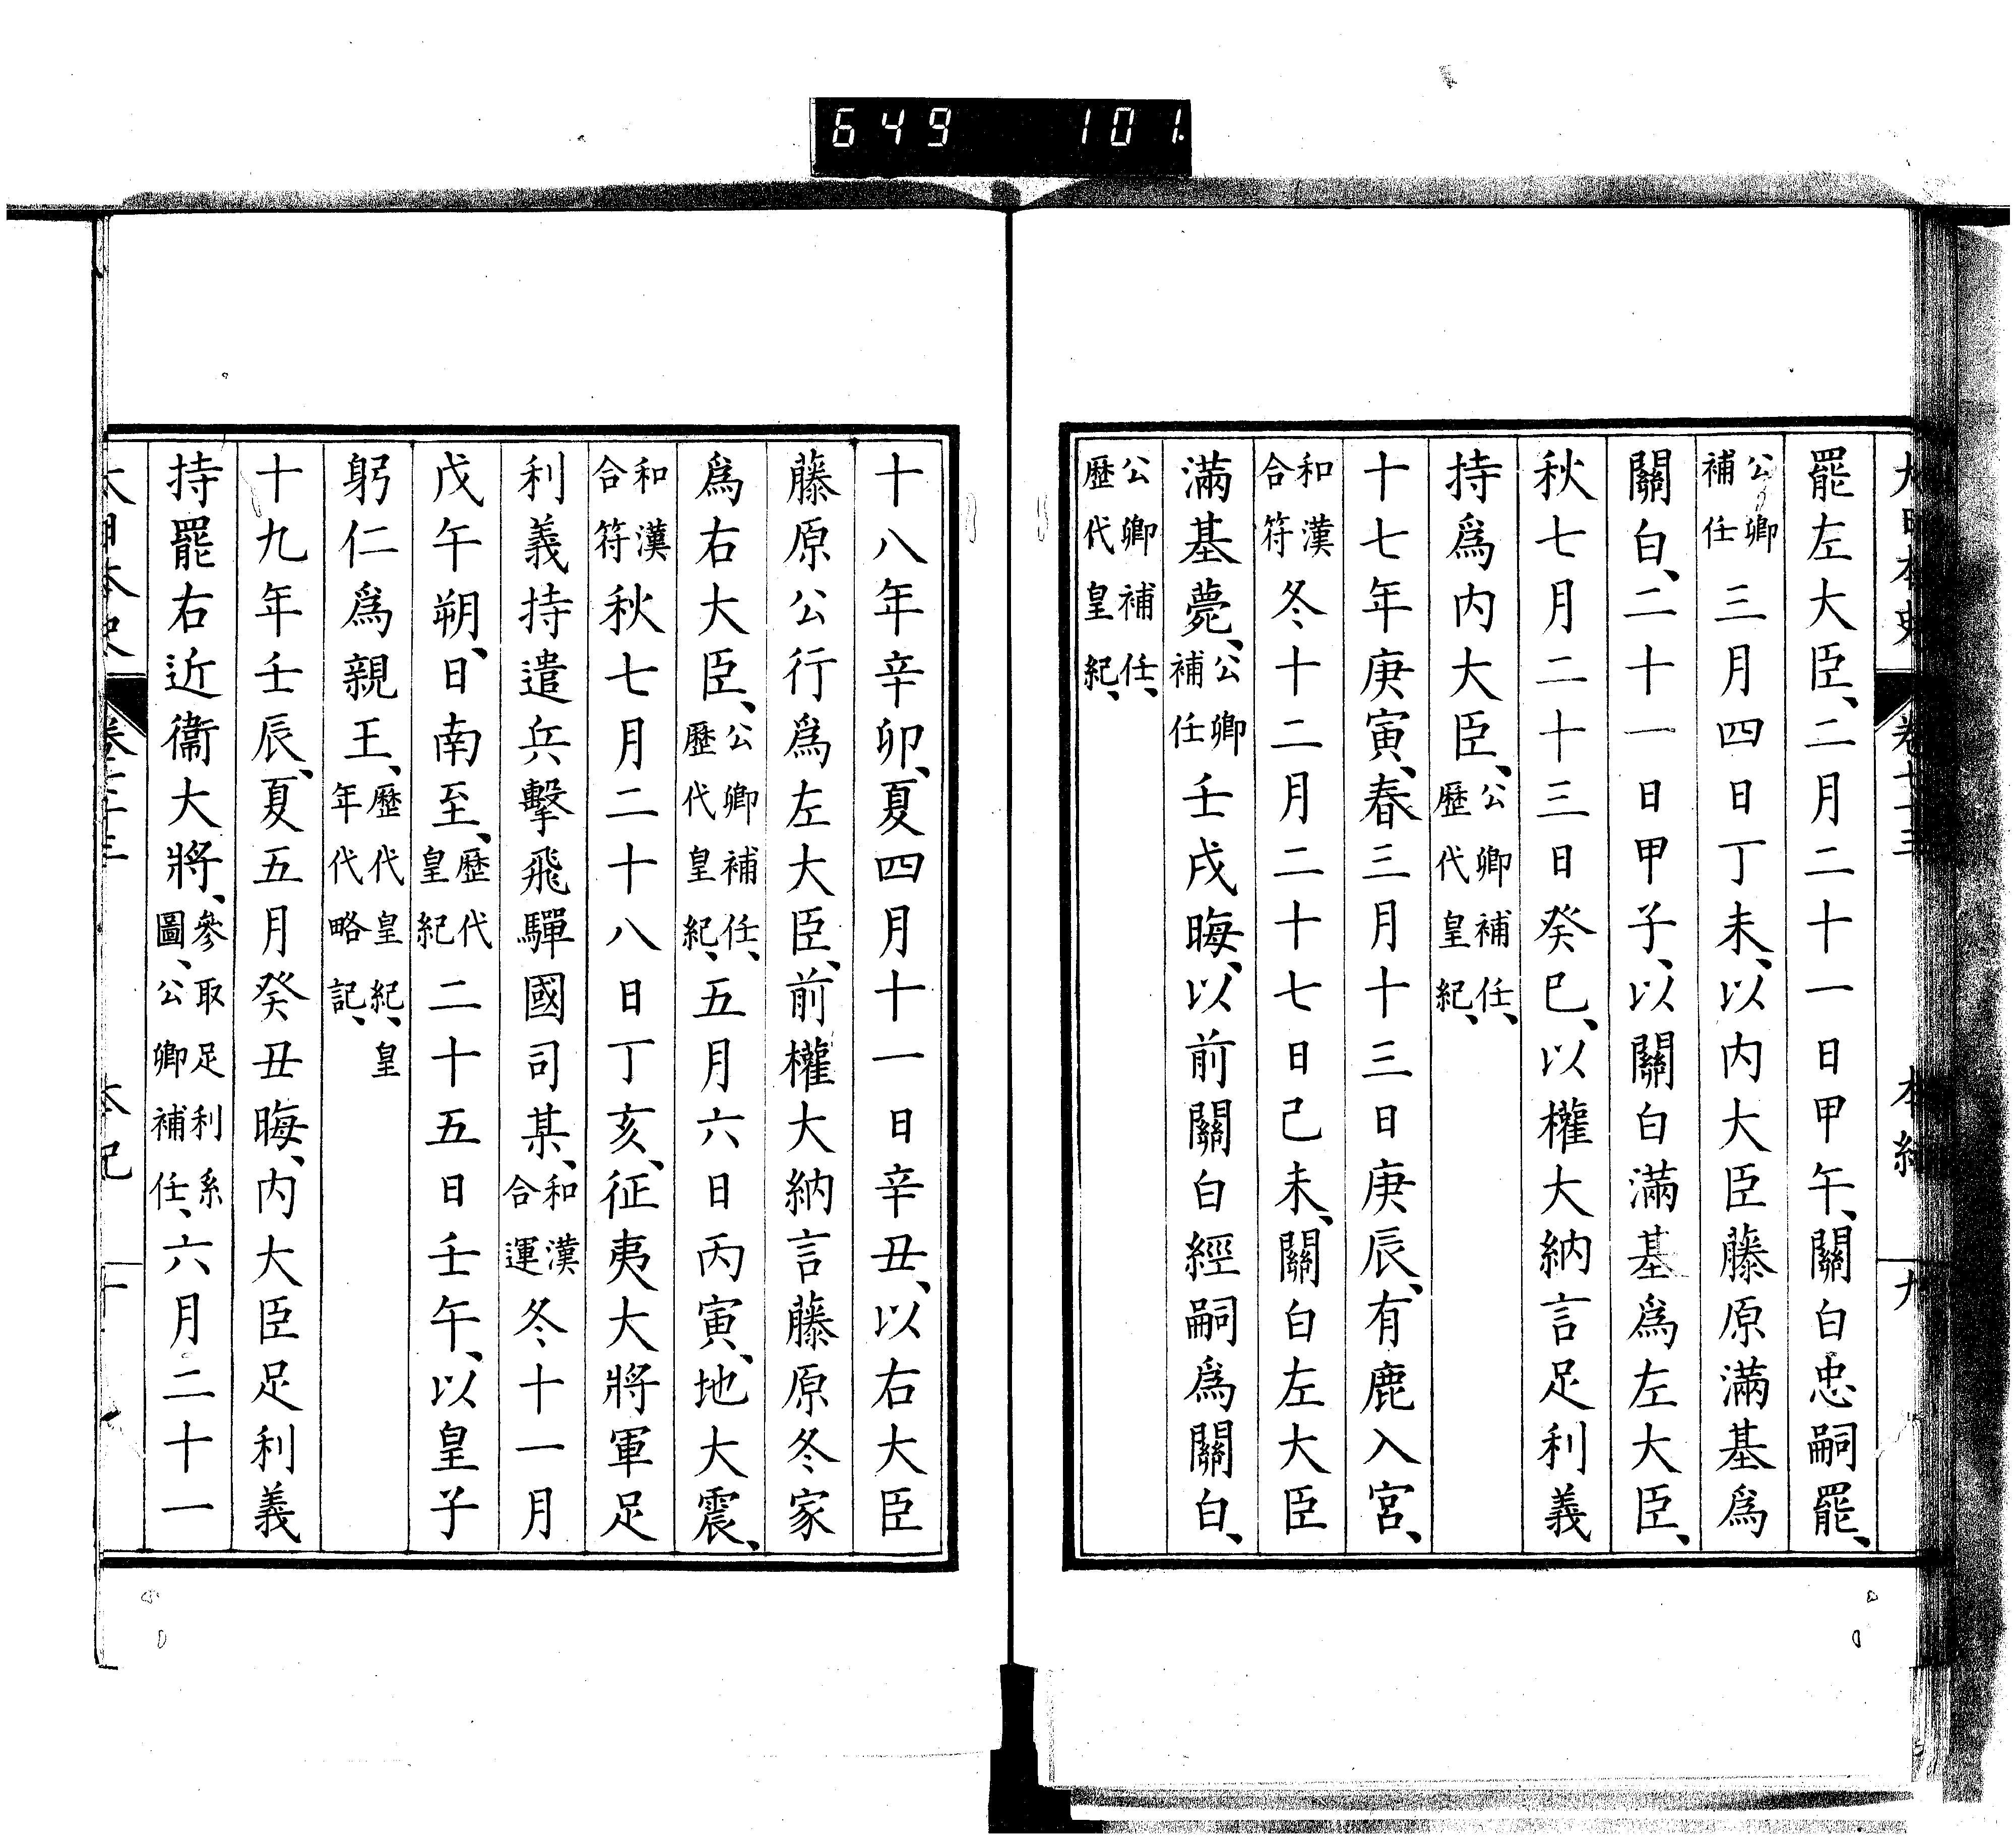 649 101.
大日本史 卷七十三 本紀 九
罷左大臣、二月二十一日甲午、關白忠嗣罷、
公卿補任三月四日丁未、以内大臣藤原滿基爲
關白、二十一日甲子、以關白滿基爲左大臣、
秋七月二十三日癸巳、以權大納言足利義
持爲内大臣、公卿補任、歷代皇紀、
十七年庚寅、春三月十三日庚辰、有鹿入宮、
和漢合符冬十二月二十七日己未、關白左大臣
滿基薨、公卿補任壬戌晦、以前關白經嗣爲關白、
公卿補任、歷代皇紀、
十八年辛卯、夏四月十一日辛丑、以右大臣
藤原公行爲左大臣、前權大納言藤原冬家
爲右大臣、公卿補任、歷代皇紀、五月六日丙寅、地大震、
和漢合符秋七月二十八日丁亥、征夷大將軍足
利義持遣兵擊飛驒國司某、和漢合運冬十一月
戊午朔、日南至、歷代皇紀二十五日壬午、以皇子
躬仁爲親王、歷代皇紀、皇年代略記、
十九年壬辰、夏五月癸丑晦、内大臣足利義
持罷右近衞大將、參取足利系圖、公卿補任、六月二十一
大日本史 卷七十三 本紀 十